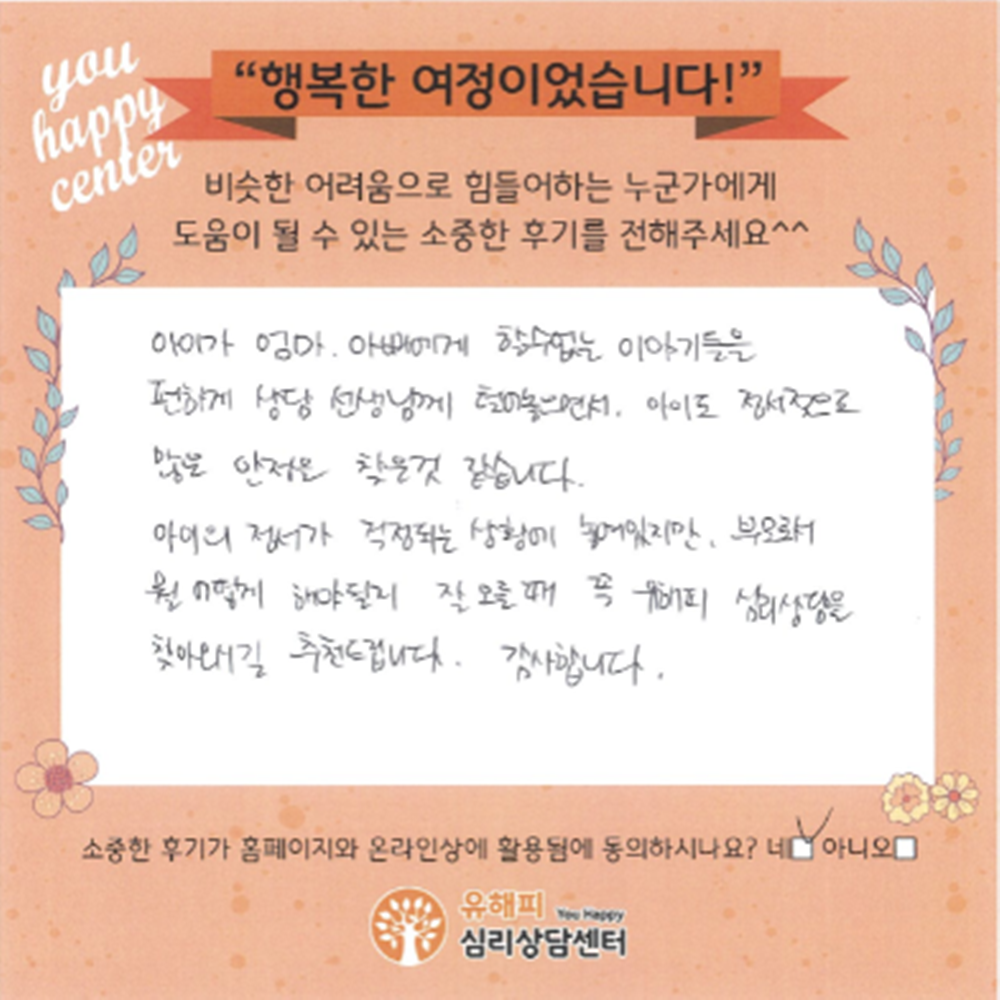 you
happy
center
“행복한 여정이었습니다!”
비슷한 어려움으로 힘들어하는 누군가에게
도움이 될 수 있는 소중한 후기를 전해주세요^^
아이가 엄마. 아빠에게 할수없는 이야기들을
편하게 상담 선생님께 털어놓으면서. 아이도 정서적으로
많은 안정을 찾은것 같습니다.
아이의 정서가 걱정되는 상황에 놓여있지만, 부모로서
뭘 어떻게 해야될지 잘 모를때 꼭 유해피 심리상담을
찾아오시길 추천드립니다. 감사합니다.
소중한 후기가 홈페이지와 온라인상에 활용됨에 동의하시나요? 네 아니오
유해피 You Happy
심리상담센터